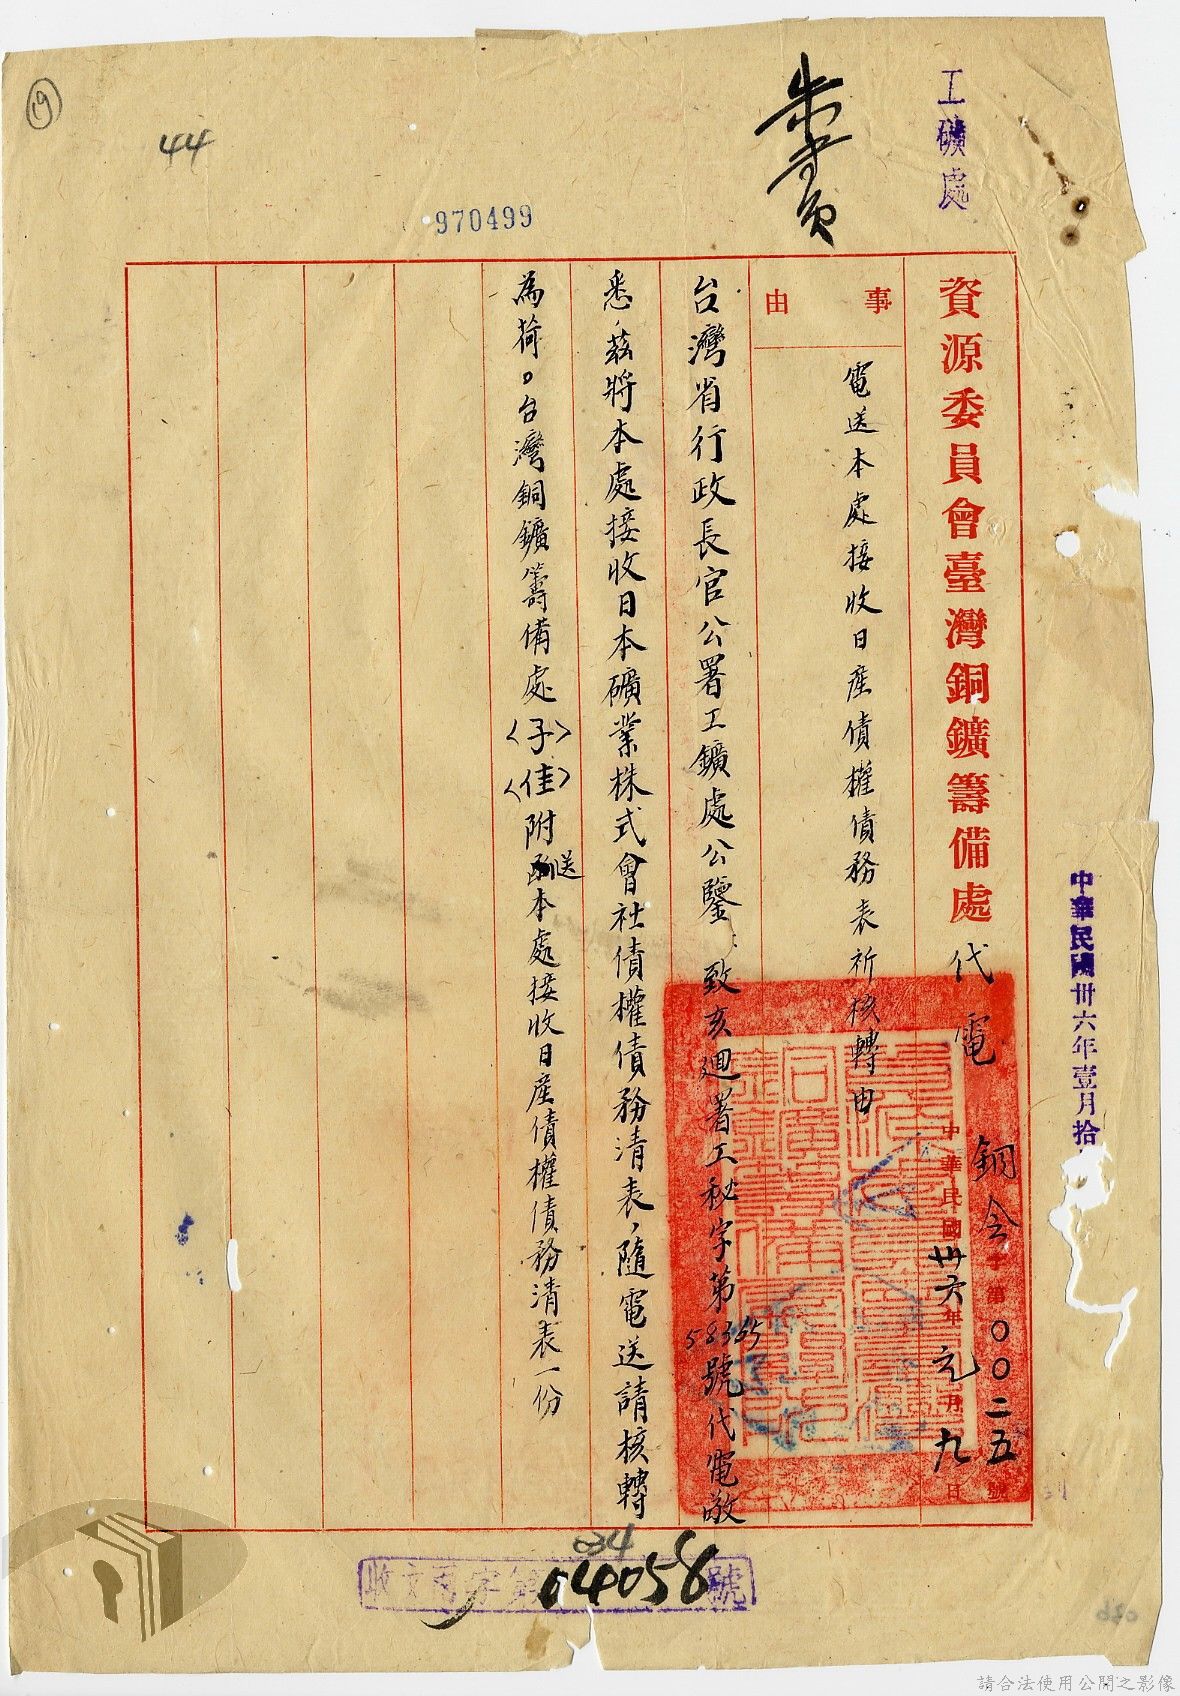 工礦處
19
44
970499
資源委員會臺灣銅鑛籌備處 代電
銅 字第〇〇二五號
中華民國卅六年元月九日
事由
電送本處接收日產債權債務表祈核轉由
台灣省行政長官公署工鑛處公鑒：致亥迴署工秘字第58365號代電敬
悉，茲將本處接收日本礦業株式會社債權債務清表，隨電送請核轉
為荷。台灣銅鑛籌備處〈子〉〈佳〉附送本處接收日產債權債務清表一份
中華民國卅六年壹月拾
收文 字第04058號
034
請合法使用公開之影像